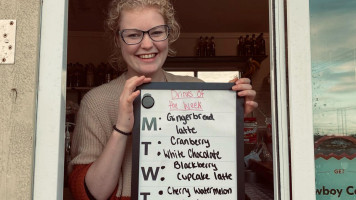 Drinks of
the Week
M: Gingerbread
latte
T: Cranberry
White Chocolate
W: Blackberry
Cupcake latte
T: Cherry Watermelon
GET
wboy Co